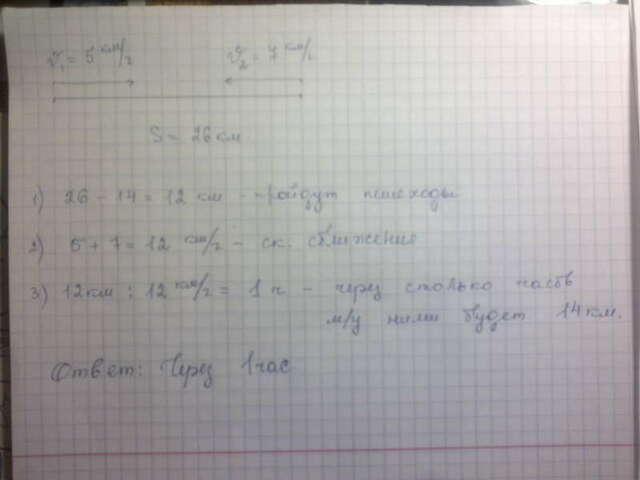 v₁ = 5 км/ч v₂ = 7 км/ч
S = 26 км
1) 26 - 14 = 12 км - пройдут пешеходы
2) 5 + 7 = 12 км/ч - ск. сближения
3) 12 км : 12 км/ч = 1 ч - через столько часов
м/у ними будет 14 км.
Ответ: Через 1 час